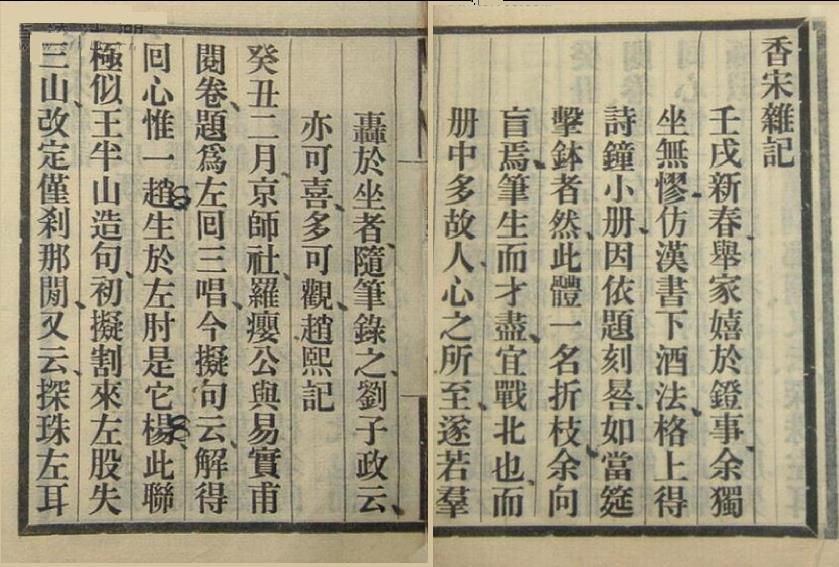 香宋雜記
壬戌新春、舉家嬉於鐙事、余獨
坐無憀、仿漢書下酒法、格上得
詩鐘小册、因依題刻晷、如當筵
擊鉢者然、此體一名折枝、余向
盲焉、筆生而才盡、宜戰北也、而
册中多故人、心之所至、遂若羣
轟於坐者、隨筆錄之、劉子政云、
亦可喜、多可觀、趙熙記
癸丑二月、京師社、羅癭公與易實甫
閱卷、題爲左回三唱、今擬句云、解得
回心惟一趙、生於左肘是它楊、此聯
極似王半山造句、初擬割來左股失
三山、改定僅刹那閒、又云、探珠左耳